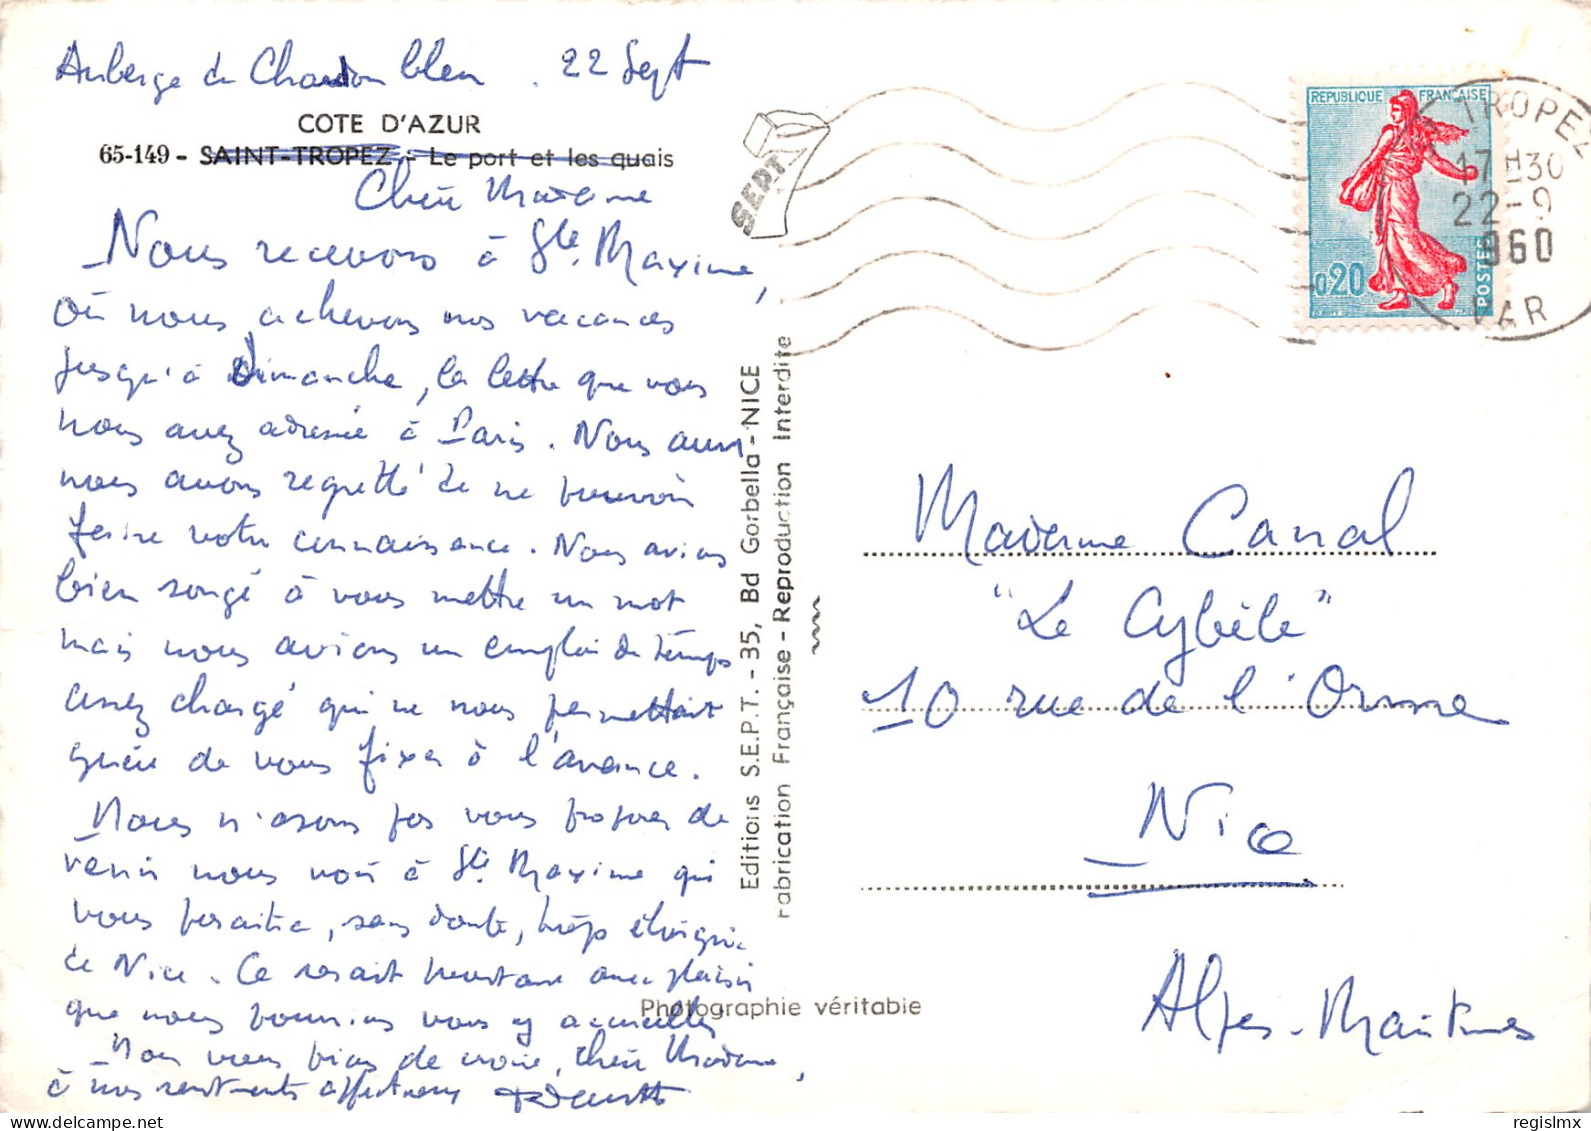 Auberge du Chardon bleu . 22 Sept
COTE D'AZUR
65-149 - SAINT-TROPEZ - Le port et les quais
Chère Madame
Nous recevons à Ste. Maxime,
où nous achevons nos vacances
jusqu'à Dimanche, la lettre que vous
nous avez adressée à Paris. Nous aussi
nous avons regretté de ne pouvoir
faire votre connaissance. Nous avions
bien songé à vous mettre un mot
mais nous avions un emploi du temps
assez chargé qui ne nous permettait
guère de vous fixer à l'avance.
Nous n'osons pas vous proposer de
venir nous voir à Ste. Maxime qui
vous paraîtra, sans doute, trop éloignée
de Nice. Ce serait pourtant avec plaisir
que nous pourrions vous y accueillir.
Nous vous prions de croire, chère Madame,
à nos sentiments affectueux
Editions S.E.P.T. - 35, Bd Gorbella - NICE
Fabrication Française - Reproduction Interdite
Photographie véritable
SEPT
REPUBLIQUE FRANÇAISE
0,20
POSTES
TROPEZ
17H30
22-9
960
VAR
Madame Canal
"Le Cybèle"
10 rue de l'Orme
Nice
Alpes-Maritimes
regislmx
delcampe.net